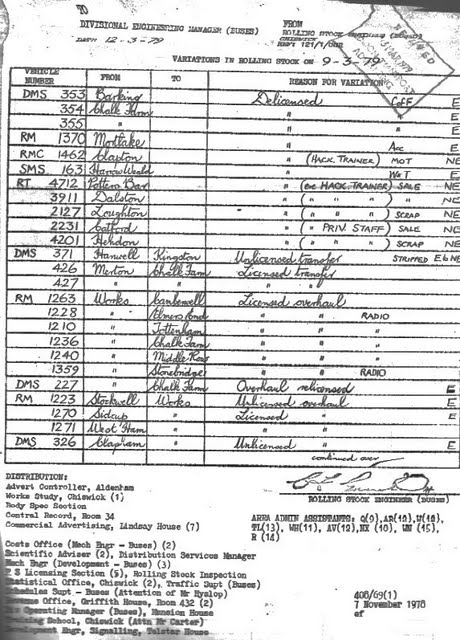 TO
DIVISIONAL ENGINEERING MANAGER (BUSES)
FROM
ROLLING STOCK ENGINEER (BUSES)
CHISWICK
DATE 12-3-79
MAR 1979
VARIATIONS IN ROLLING STOCK ON 9-3-79
VEHICLE NUMBER FROM TO REASON FOR VARIATION
DMS 353 Barking Delicensed CofF E
354 Chalk Farm " " E
355 " " " E
RM 1370 Mortlake " Acc E
RMC 1462 Clapton " (HACK. TRAINER) MOT NE
SMS 163 Harrow Weald " W&T E
RT 4712 Potters Bar " (ex HACK. TRAINER) SALE NE
3911 Dalston " ( " " " ) " NE
2127 Loughton " ( " " " ) SCRAP NE
2231 Catford " ( " PRIV. STAFF) SALE NE
4201 Hendon " ( " " " ) SCRAP NE
DMS 371 Hanwell Kingston Unlicensed transfer STRIPPED E6 NE
426 Merton Chalk Farm Licensed transfer
427 " " " "
RM 1263 Works Camberwell Licensed overhaul
1228 " Elmers End " " RADIO
1210 " Tottenham " "
1236 " Chalk Farm " "
1240 " Middle Row " "
1359 " Stonebridge " " RADIO
DMS 227 " Chalk Farm Overhaul relicensed E
RM 1223 Stockwell Works Unlicensed overhaul E
1270 Sidcup " Licensed " E
1271 West Ham " " "
DMS 326 Clapham " Unlicensed " E
continued over
DISTRIBUTION:
Advert Controller, Aldenham
Works Study, Chiswick (1)
Body Spec Section
Central Record, Room 34
Commercial Advertising, Lindsay House (7)
ROLLING STOCK ENGINEER (BUSES)
AREA ADMIN ASSISTANTS: Q(9), AR(10), W(18),
TL(13), WH(11), AV(12), HX (10), WN (15),
B (14)
Costs Office (Mech Engr - Buses) (2)
Scientific Adviser (2), Distribution Services Manager
Mech Engr (Development - Buses) (3)
P S Licensing Section (5), Rolling Stock Inspection
Statistical Office, Chiswick (2), Traffic Supt (Buses)
Schedules Supt - Buses (Attention of Mr Hyslop)
Revenue Office, Griffith House, Room 432 (2)
Operating Manager (Buses), Mansion House
Training School, Chiswick (Attn Mr Carter)
Development Engr, Signalling, Telstar House
408/69(1)
7 November 1978
of